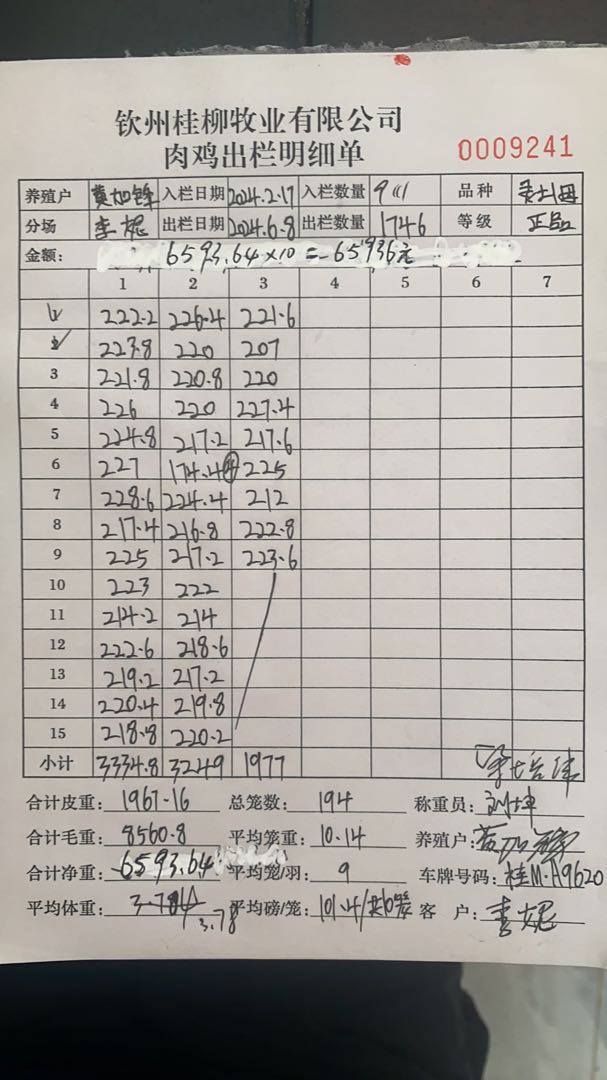 钦州桂柳牧业有限公司
肉鸡出栏明细单 0009241
养殖户 入栏日期 2024.2.17 入栏数量 品种
分场 李妮 出栏日期 2024.6.8 出栏数量 1746 等级 正品
金额: 6593.64×10=65936元
1 2 3 4 5 6 7
1 222.2 226.4 221.6
2 223.8 220 207
3 221.8 220.8 220
4 226 220 227.4
5 224.8 217.2 217.6
6 227 174.4④ 225
7 228.6 224.4 212
8 217.4 216.8 222.8
9 225 217.2 223.6
10 223 222
11 214.2 214
12 222.6 218.6
13 219.2 217.2
14 220.4 219.8
15 218.8 220.2
小计 3334.8 3249 1977
合计皮重: 1967.16 总笼数: 194 称重员:
合计毛重: 8560.8 平均笼重: 10.14 养殖户:
合计净重: 6593.64 平均笼/羽: 9 车牌号码: 桂M·A9620
平均体重: 3.78 平均磅/笼: 101.4 客户: 李妮